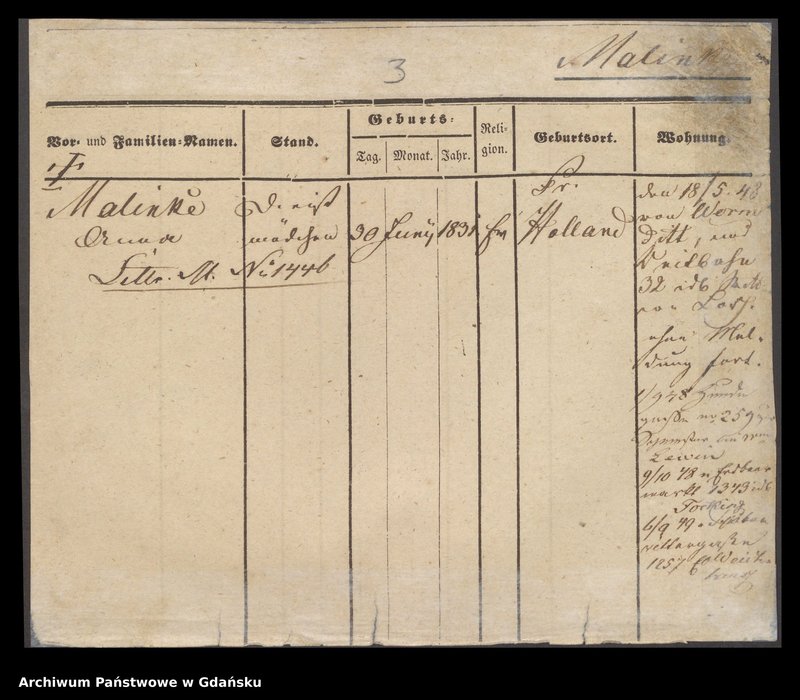 3
Malinke
Vor- und Familien-Namen.
Stand.
Geburts-
Tag.
Monat.
Jahr.
Reli-
gion.
Geburtsort.
Wohnung.
Malinke
Anna
Littr. M. No 1446
Dienst
mädchen
30
Juny
1831
Ev
Pr.
Holland
den 18/5. 48
von Worm
ditt, nach
Reitbahn
32
von
ohne Mel-
dung fort.
1/9 48 Hunde
gasse no 259
Lewin
9/10 48 n Erdbeer
markt 1343
6/9 49
1257
Archiwum Państwowe w Gdańsku